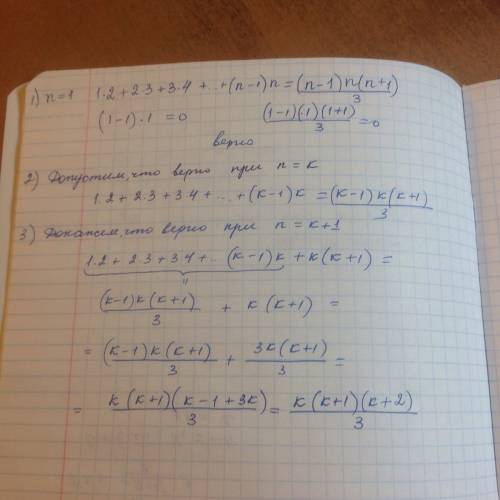 1) n=1 1·2+2·3+3·4+...+(n-1)n=(n-1)n(n+1)/3
(1-1)·1=0 (1-1)(·1)(1+1)/3=0
верно
2) Допустим, что верно при n=k
1·2+2·3+3·4+...+(k-1)k=(k-1)k(k+1)/3
3) Докажем, что верно при n=k+1
1·2+2·3+3·4+..(k-1)k+k(k+1)=
(k-1)k(k+1)/3+k(k+1)=
=(k-1)k(k+1)/3+3k(k+1)/3=
=k(k+1)(k-1+3k)/3=k(k+1)(k+2)/3